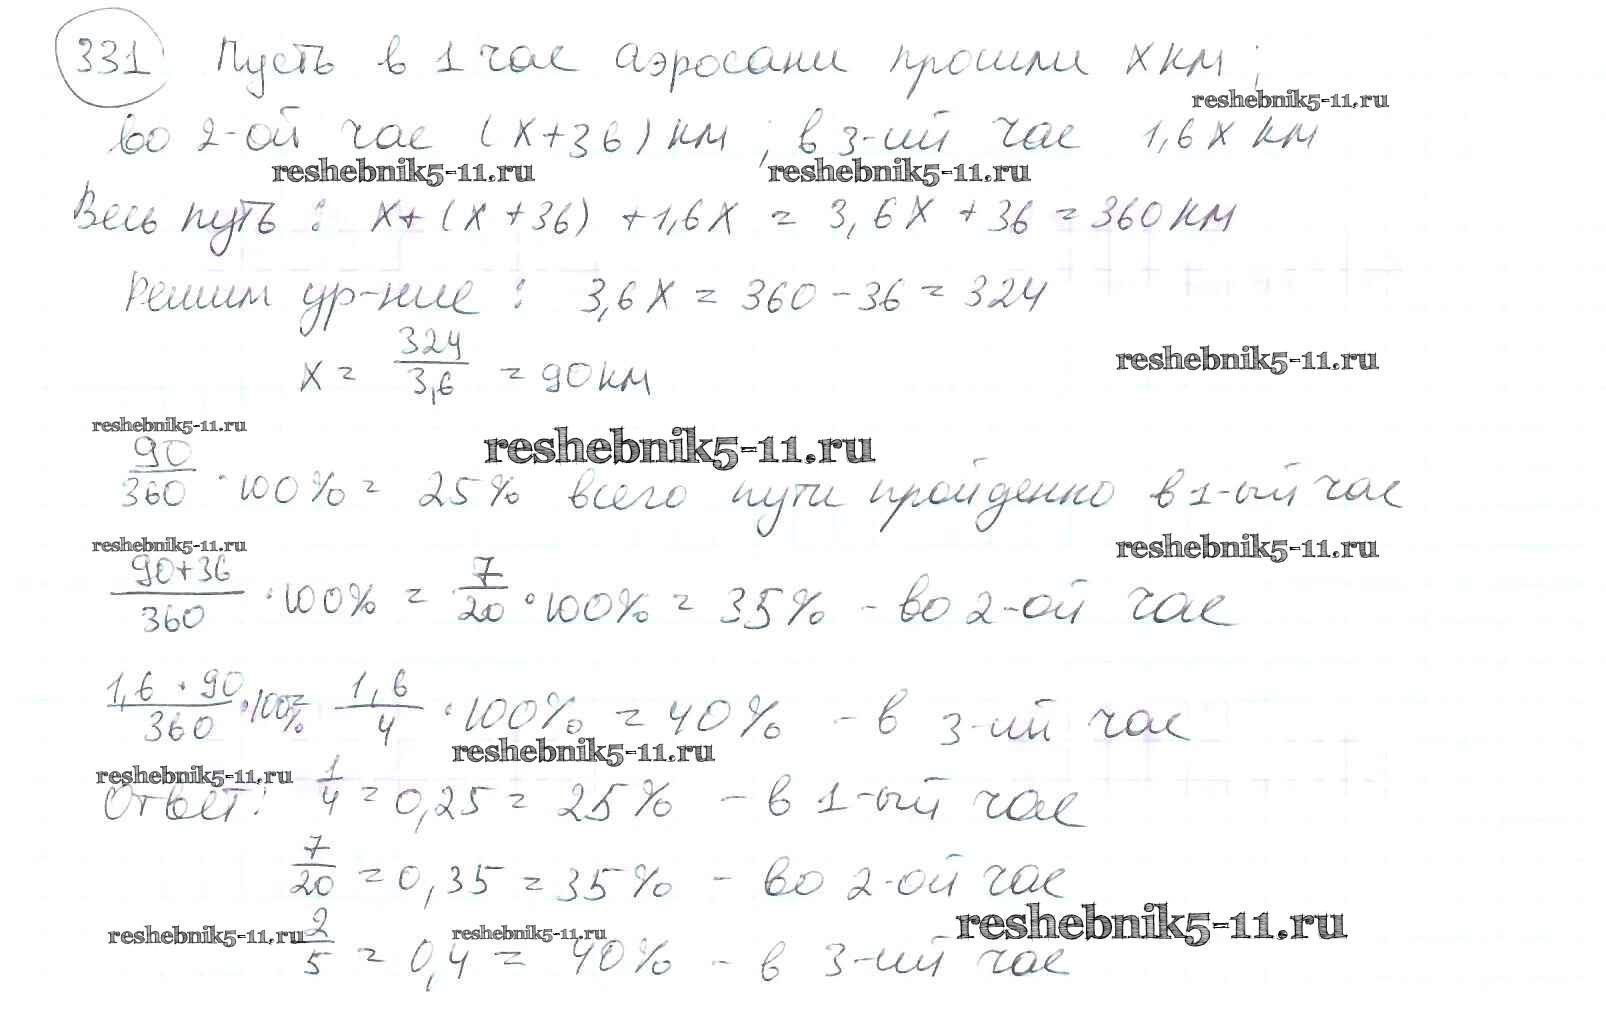 331 Пусть в 1 час аэросани прошли x км;
reshebnik5-11.ru
во 2-ой час (x+36) км; в 3-ий час 1,6x км
reshebnik5-11.ru reshebnik5-11.ru
Весь путь: x+(x+36)+1,6x = 3,6x+36 = 360 км
Решим ур-ние: 3,6x = 360-36 = 324
x = 324/3,6 = 90 км
reshebnik5-11.ru
reshebnik5-11.ru reshebnik5-11.ru
90/360 · 100% = 25% всего пути пройденно в 1-ый час
reshebnik5-11.ru reshebnik5-11.ru
90+36/360 · 100% = 7/20 · 100% = 35% - во 2-ой час
1,6 · 90/360 · 100% = 1,6/4 · 100% = 40% - в 3-ий час
reshebnik5-11.ru reshebnik5-11.ru
Ответ: 1/4 = 0,25 = 25% - в 1-ый час
7/20 = 0,35 = 35% - во 2-ой час
reshebnik5-11.ru reshebnik5-11.ru reshebnik5-11.ru
2/5 = 0,4 = 40% - в 3-ий час